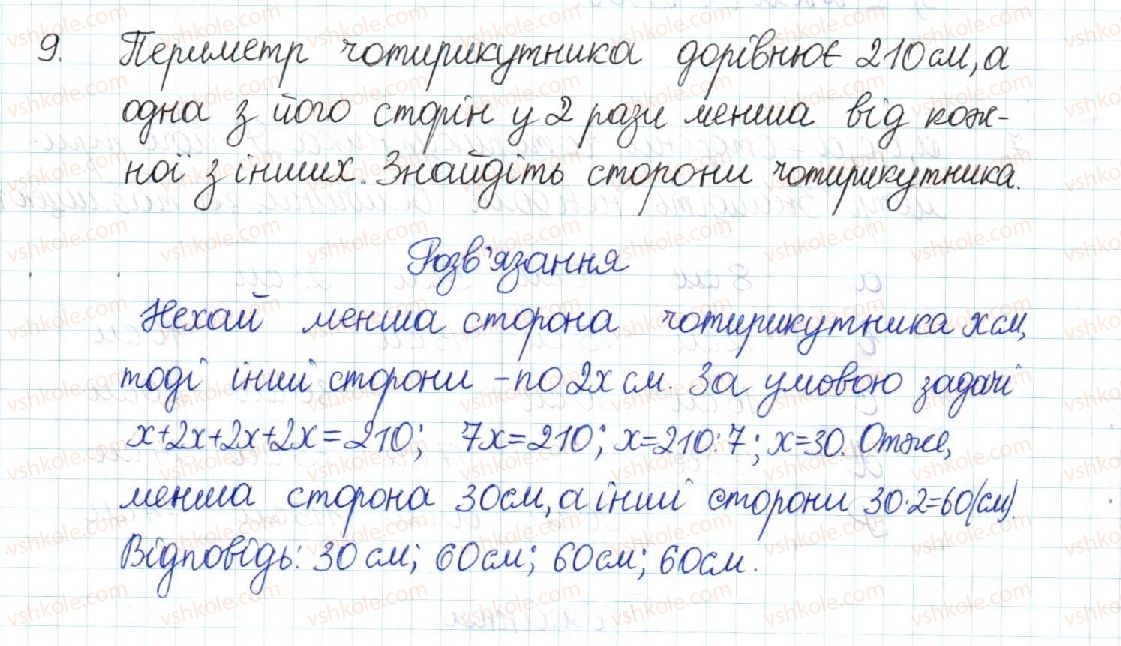 9. Периметр чотирикутника дорівнює 210 см, а
одна з його сторін у 2 рази менша від кож-
ної з інших. Знайдіть сторони чотирикутника.
Розв'язання
Нехай менша сторона чотирикутника x см,
тоді інші сторони - по 2x см. За умовою задачі
x+2x+2x+2x=210; 7x=210; x=210:7; x=30. Отже,
менша сторона 30см, а інші сторони 30·2=60(см)
Відповідь: 30 см; 60см; 60см; 60см.